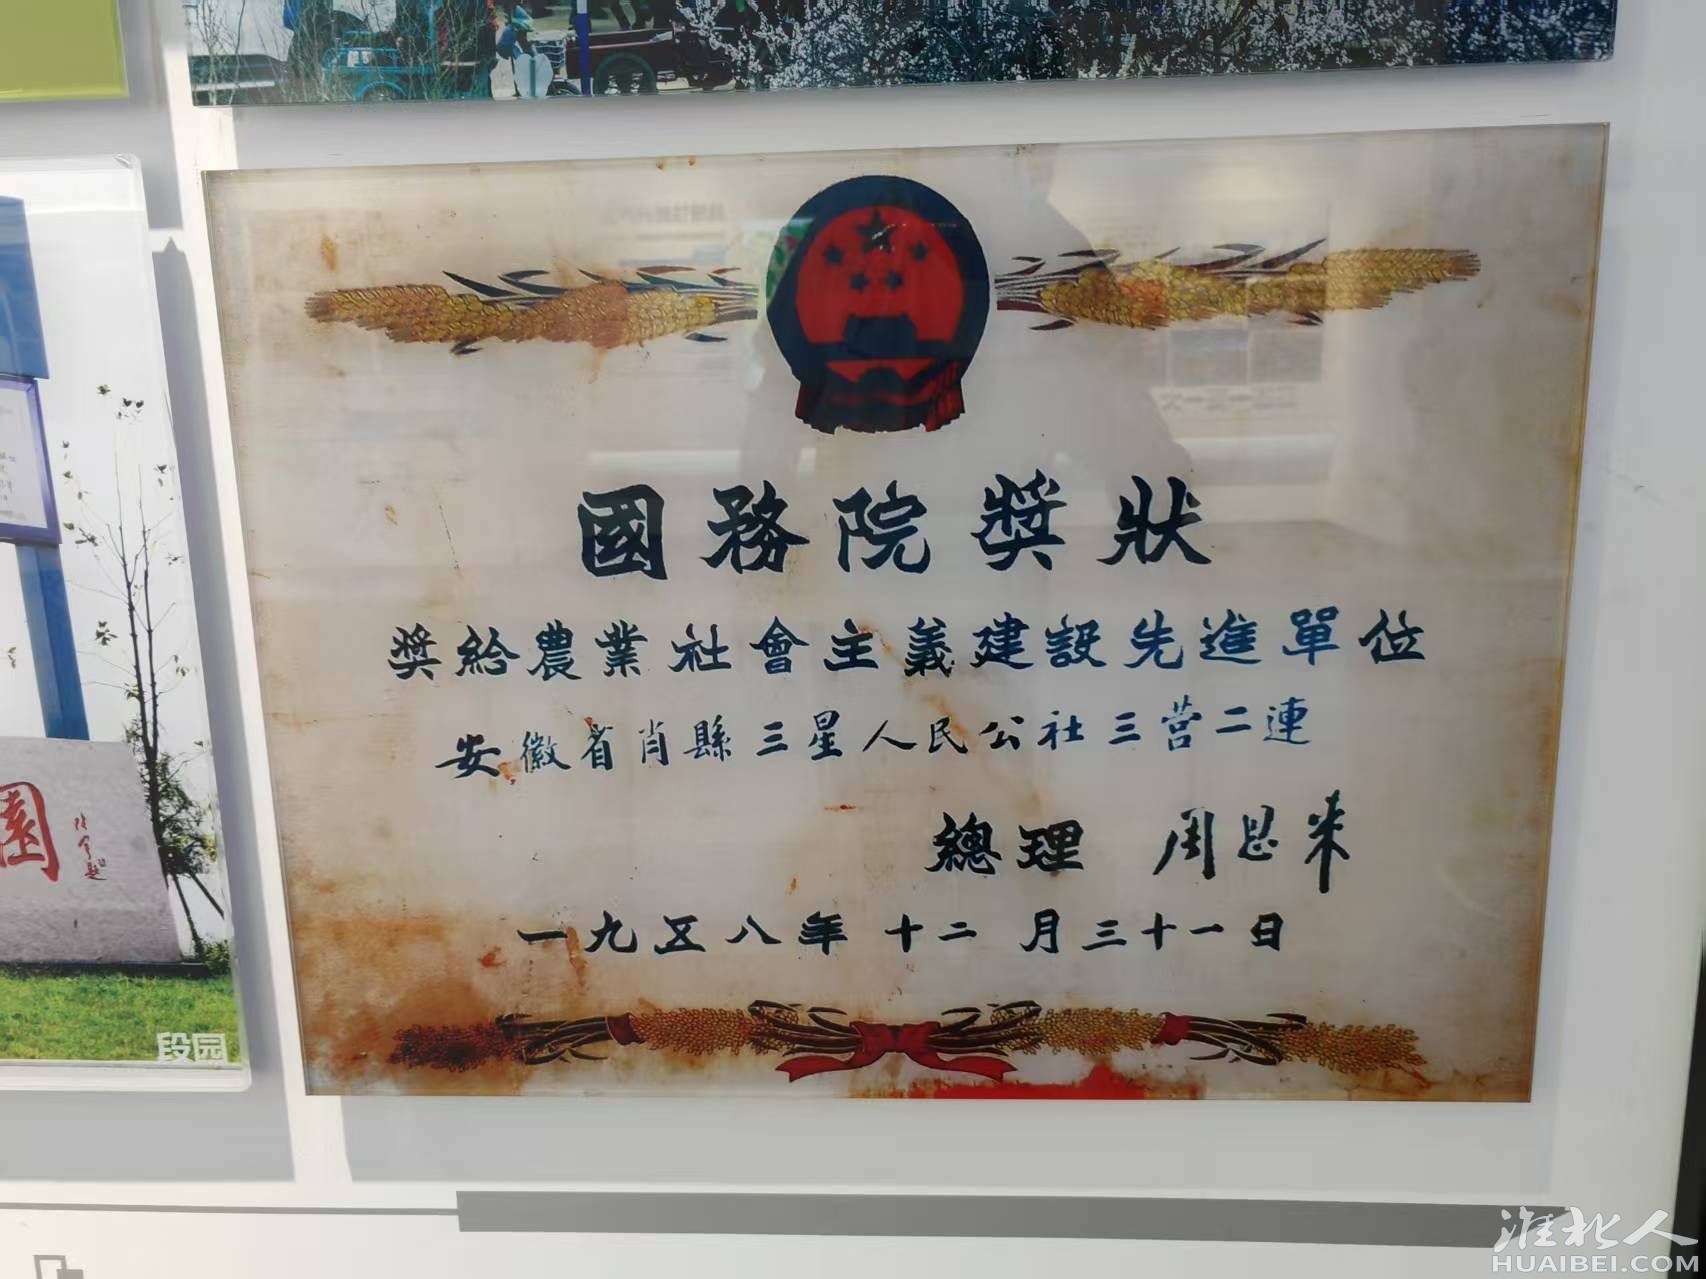 國務院獎狀
獎給農業社會主義建設先進單位
安徽省肖縣三星人民公社三营二連
總理 周恩来
一九五八年 十二月三十一日
園
段园
淮北人
HUAIBEI.COM